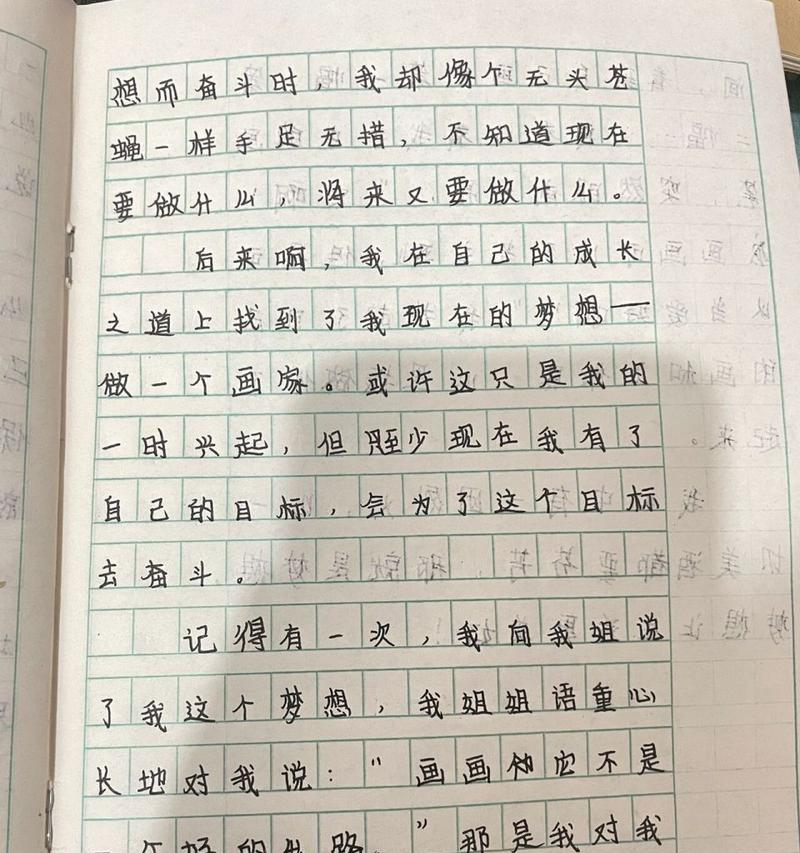 想而奋斗时，我却像个无头苍
蝇一样手足无措，不知道现在
要做什么，将来又要做什么。
后来啊，我在自己的成长
之道上找到了我现在的梦想——
做一个画家。或许这只是我的
一时兴起，但至少现在我有了
自己的目标，会为了这个目标
去奋斗。
记得有一次，我向我姐说
了我这个梦想，我姐姐语重心
长地对我说："画画它不是
一个好的出路。"那是我对我